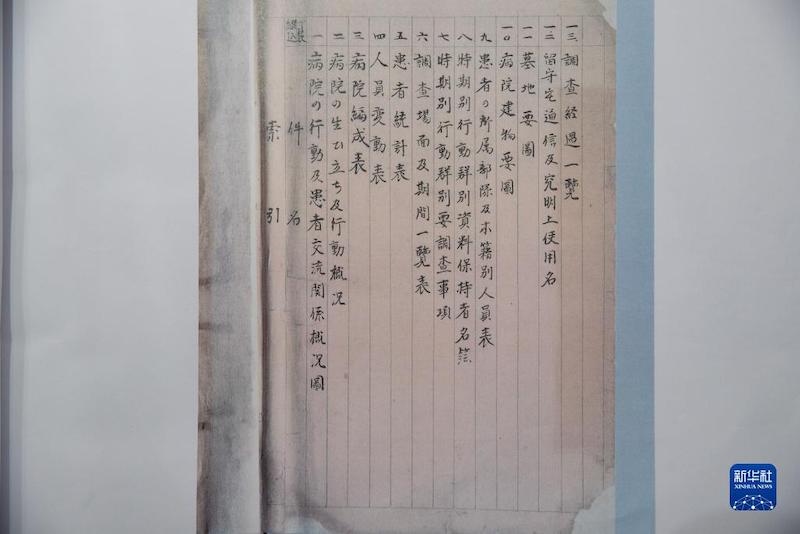 件名
索引
一 病院の行動及患者交流関係概況圖
二 病院の生ひ立ち及行動概況
三 病院編成表
四 人員変動表
五 患者統計表
六 調査場面及期間一覽表
七 時期別行動群別要調査事項
八 時期別行動群別資料保持者名簿
九 患者の所属部隊及本籍別人員表
一〇 病院建物要圖
一一 墓地要圖
一二 留守宅通信及究明上使用名
一三 調査経過一覽
新华社
XINHUA NEWS